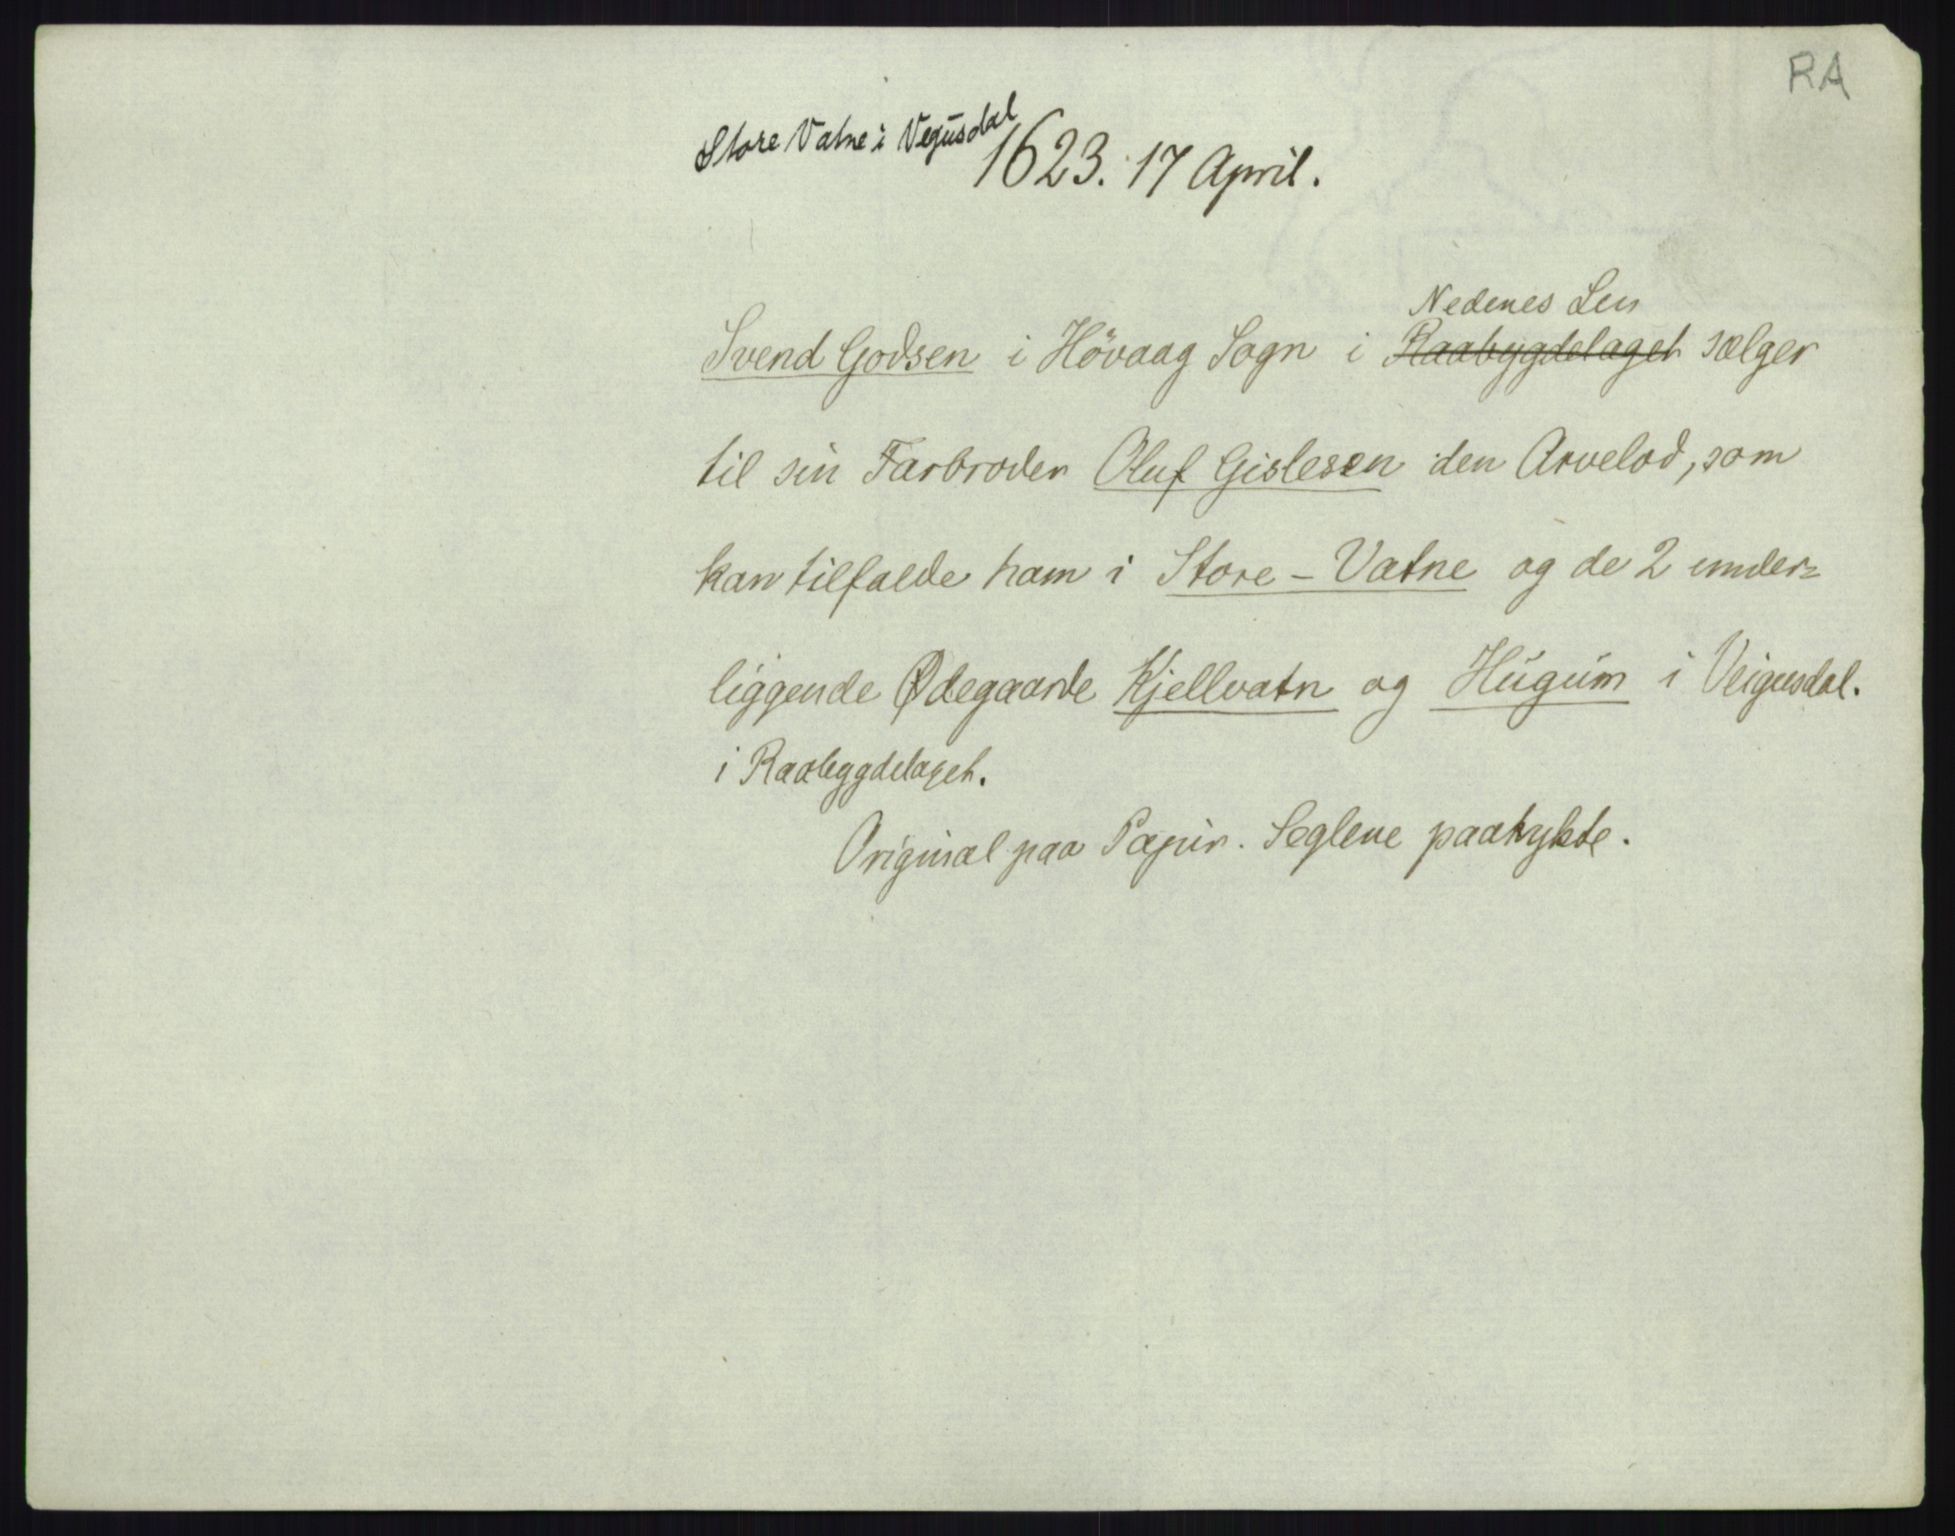 RA
Store Vatne i Vegusdal
1623. 17 April.
Nedenes Len
Svend Godsen i Hövaag Sogn i Raabygdelaget sælger
til sin Farbroder Oluf Gislesen den Arvelod, som
kan tilfalde ham i Store - Vatne og de 2 under=
liggende Ødegaarde Kjellvatn og Hugum i Veigusdal.
i Raabygdelaget.
Original paa Papir. Seglene paatrykte.